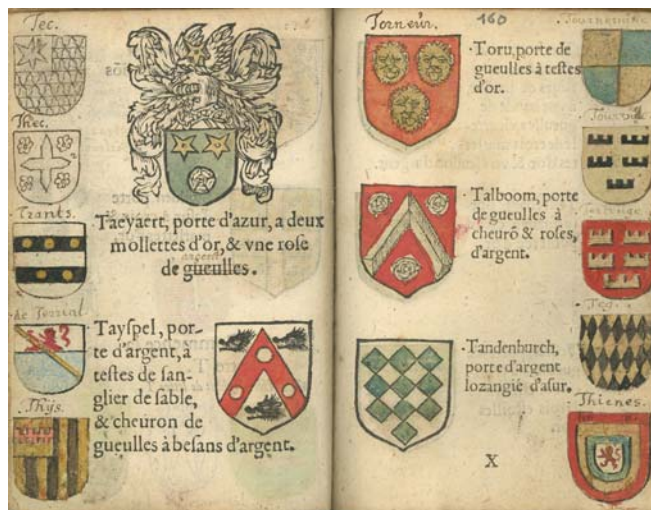 Tec.
Thec.
Trants.
Thÿs.
Taeyaert, porte d'azur, a deux
mollettes d'or, & vne rose
de gueulles.
argent
Tayspel, por-
te d'argent, a
testes de san-
glier de sable,
& cheuron de
gueulles à besans d'argent.
Torneur.
160
Toru, porte de
gueulles à testes
d'or.
Talboom, porte
de gueulles à
cheurō & roses,
d'argent.
Tandenburch,
porte d'argent
lozangié d'asur.
X
Tournemine
Thienes.